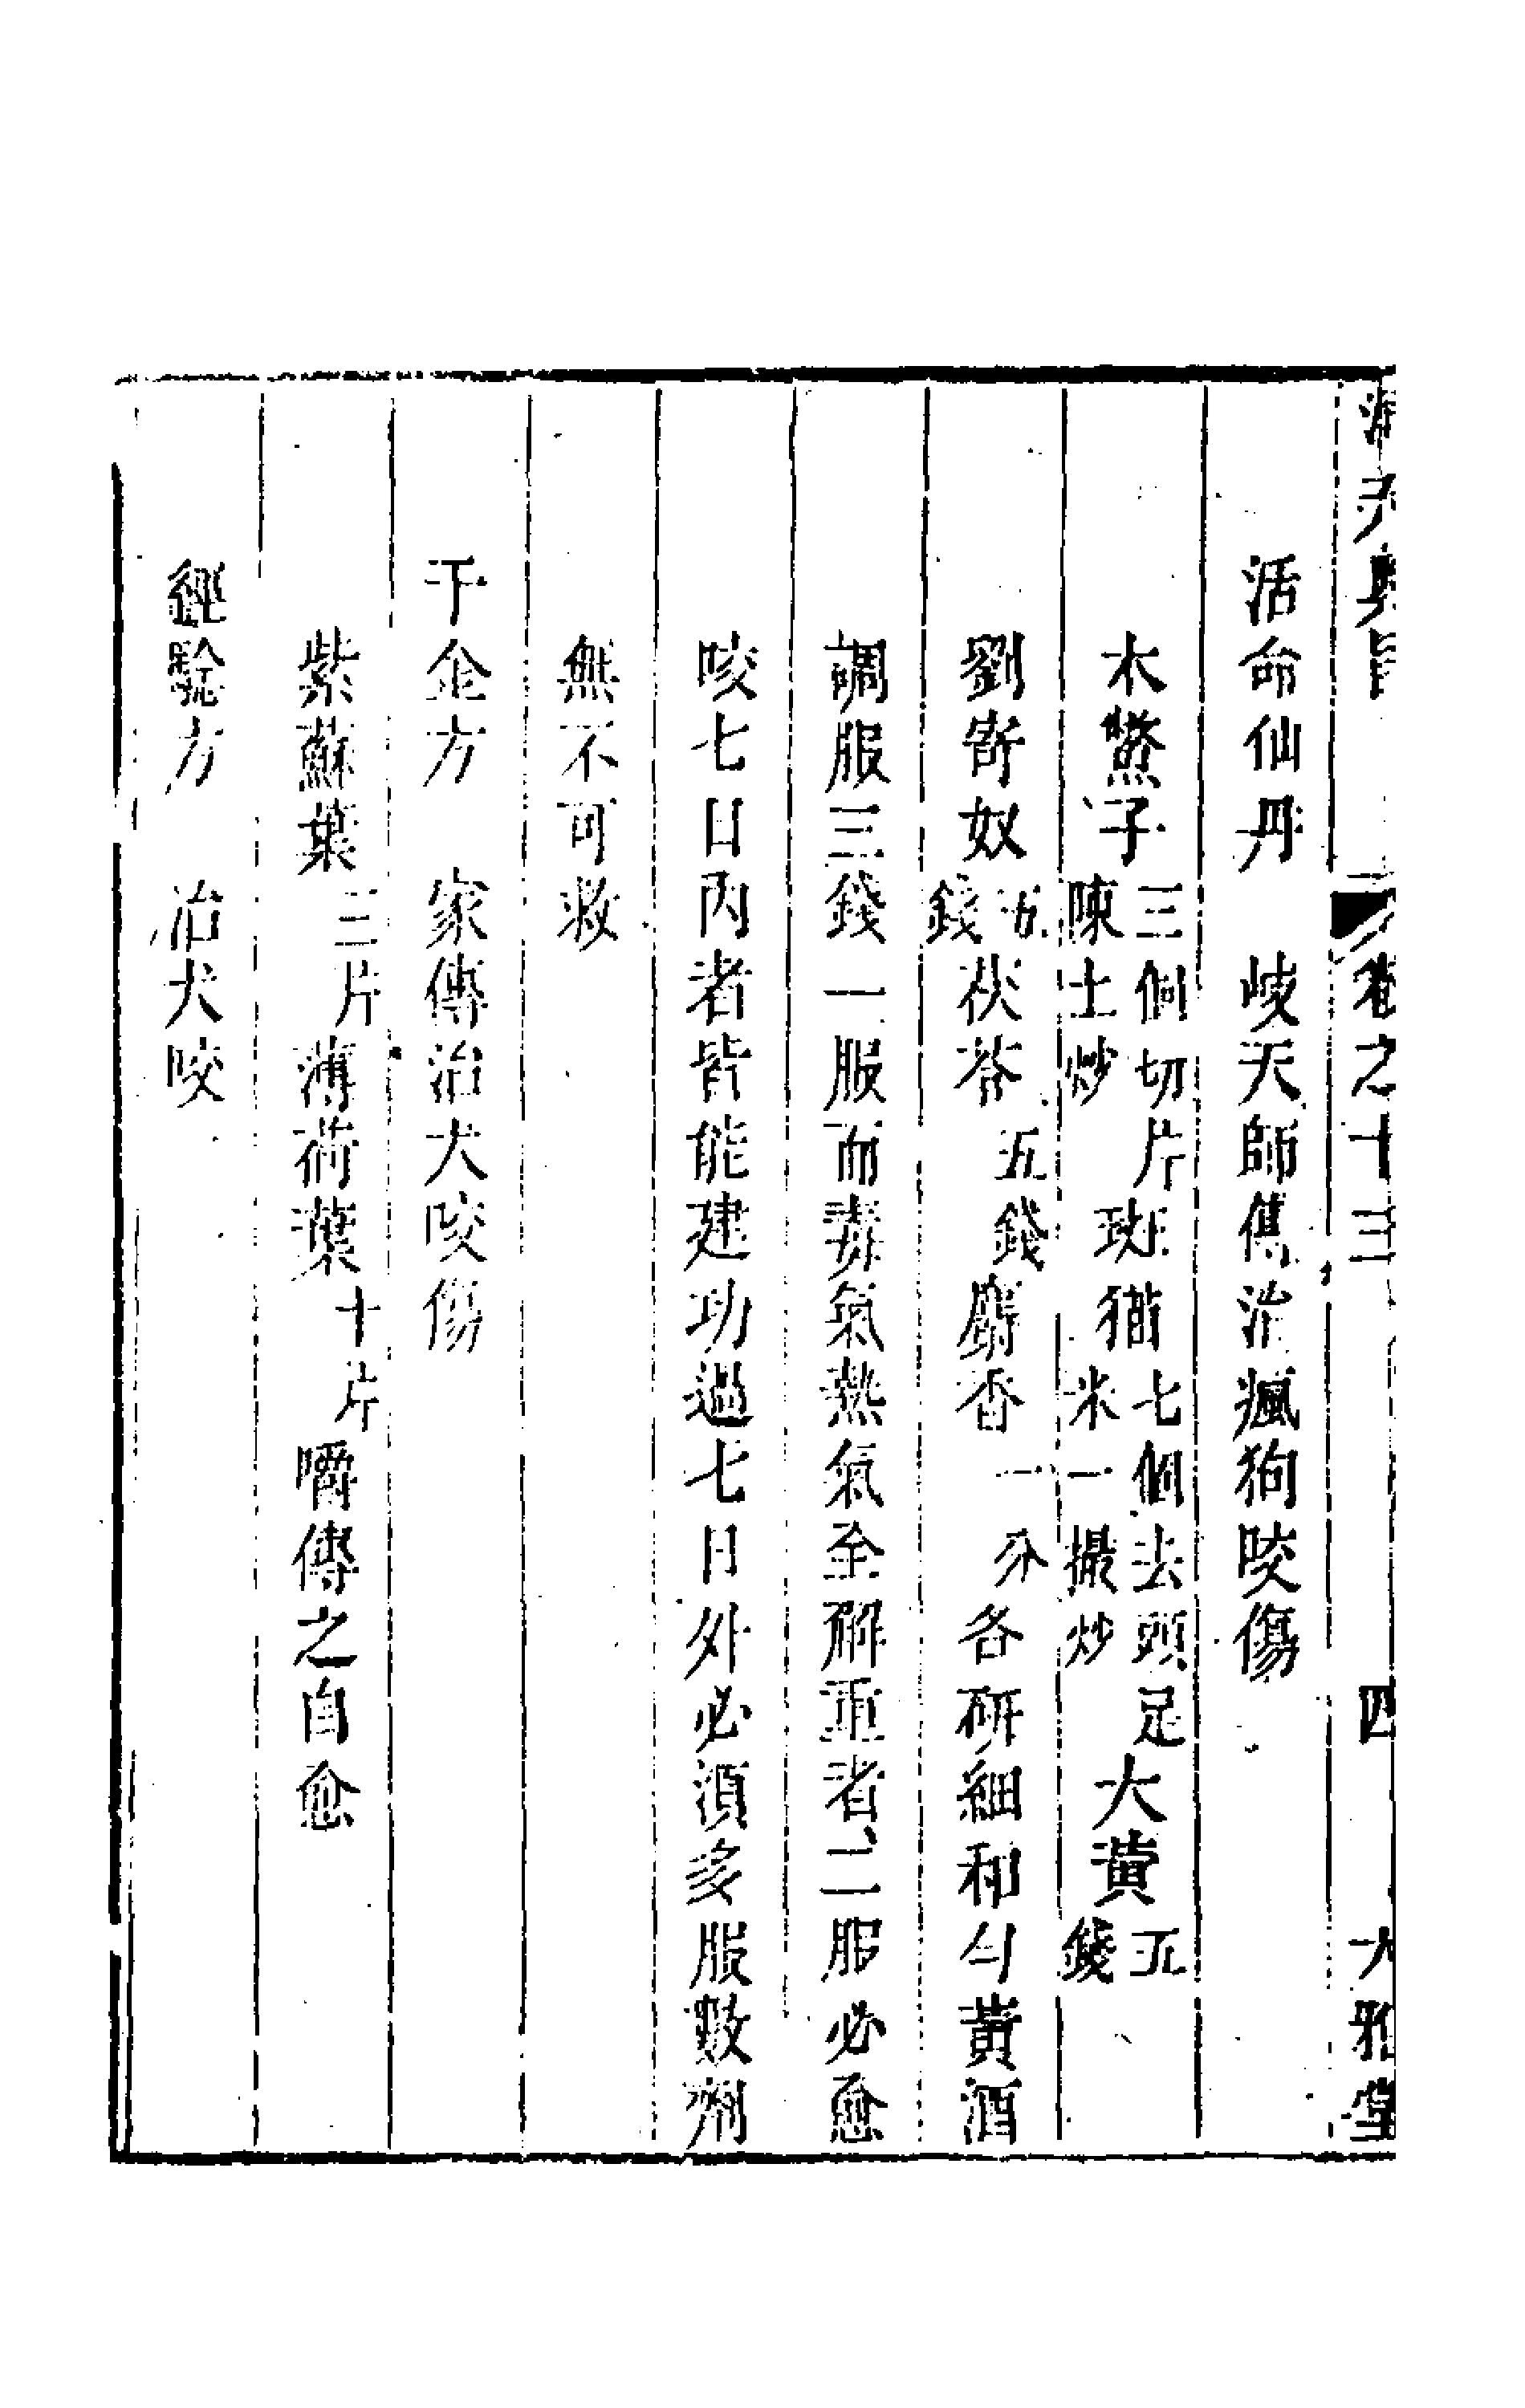 洞天奧旨 卷之十三 四 大雅堂
活命仙丹 岐天師傳治瘋狗咬傷
木鱉子三個切片陳土炒 斑猫七個去頭足米一撮炒 大黃五錢
劉寄奴五錢 茯苓五錢 麝香一分 各研細和勻黃酒
調服三錢一服而毒氣熱氣全解重者二服必愈
咬七日內者皆能建功過七日外必須多服數劑
無不可救
千金方 家傳治犬咬傷
紫蘇葉三片 薄荷葉十片 嚼傅之自愈
經驗方 治犬咬